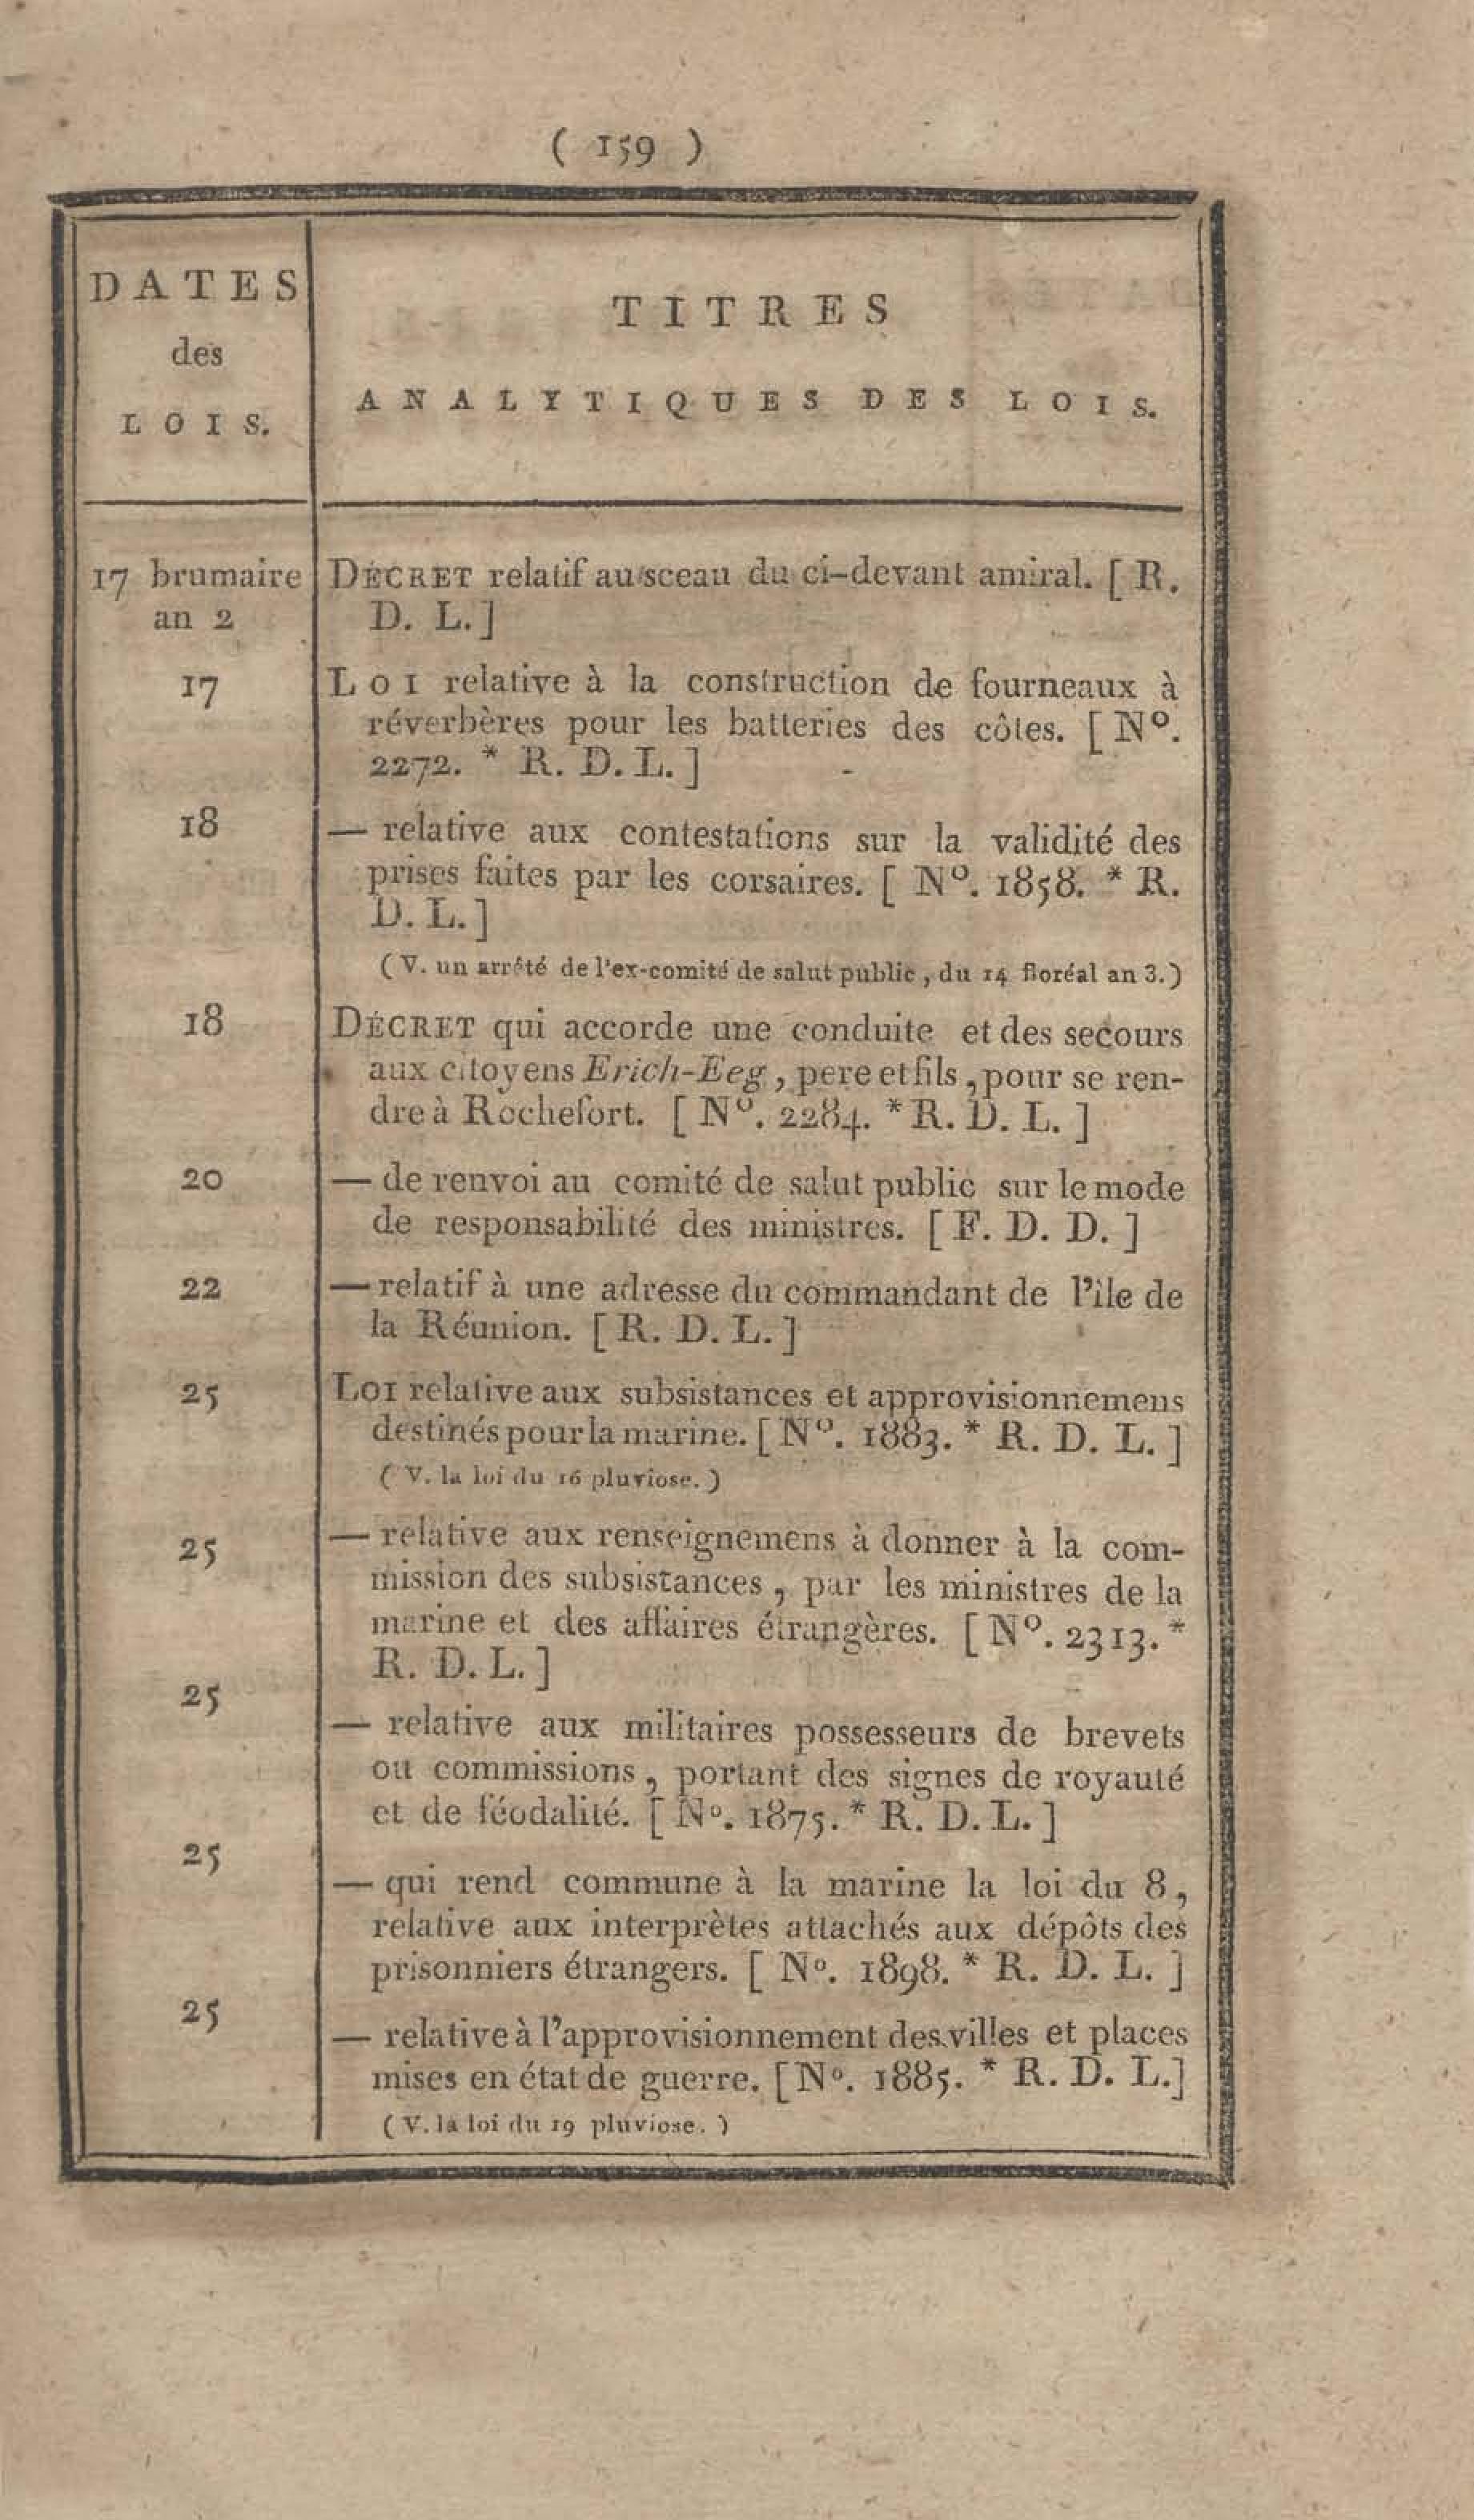 ( 159 )
DATES
des
LOIS.
TITRES
ANALYTIQUES DES LOIS.
17 brumaire
an 2
DÉCRET relatif au sceau du ci-devant amiral. [ R.
D. L. ]
17
LOI relative à la construction de fourneaux à
réverbères pour les batteries des côtes. [ Nº.
2272. * R. D. L. ]
18
— relative aux contestations sur la validité des
prises faites par les corsaires. [ Nº. 1858. * R.
D. L. ]
( V. un arrêté de l'ex-comité de salut public, du 14 floréal an 3. )
18
DÉCRET qui accorde une conduite et des secours
aux citoyens Erich-Eeg, pere et fils, pour se ren-
dre à Rochefort. [ Nº. 2284. * R. D. L. ]
20
— de renvoi au comité de salut public sur le mode
de responsabilité des ministres. [ F. D. D. ]
22
— relatif à une adresse du commandant de l'ile de
la Réunion. [ R. D. L. ]
25
LOI relative aux subsistances et approvisionnemens
destinés pour la marine. [ Nº. 1883. * R. D. L. ]
( V. la loi du 16 pluviose. )
25
— relative aux renseignemens à donner à la com-
mission des subsistances, par les ministres de la
marine et des affaires étrangères. [ Nº. 2313. *
R. D. L. ]
25
— relative aux militaires possesseurs de brevets
ou commissions, portant des signes de royauté
et de féodalité. [ Nº. 1875. * R. D. L. ]
25
— qui rend commune à la marine la loi du 8,
relative aux interprètes attachés aux dépôts des
prisonniers étrangers. [ Nº. 1898. * R. D. L. ]
25
— relative à l'approvisionnement des villes et places
mises en état de guerre. [ Nº. 1885. * R. D. L. ]
( V. la loi du 19 pluviose. )